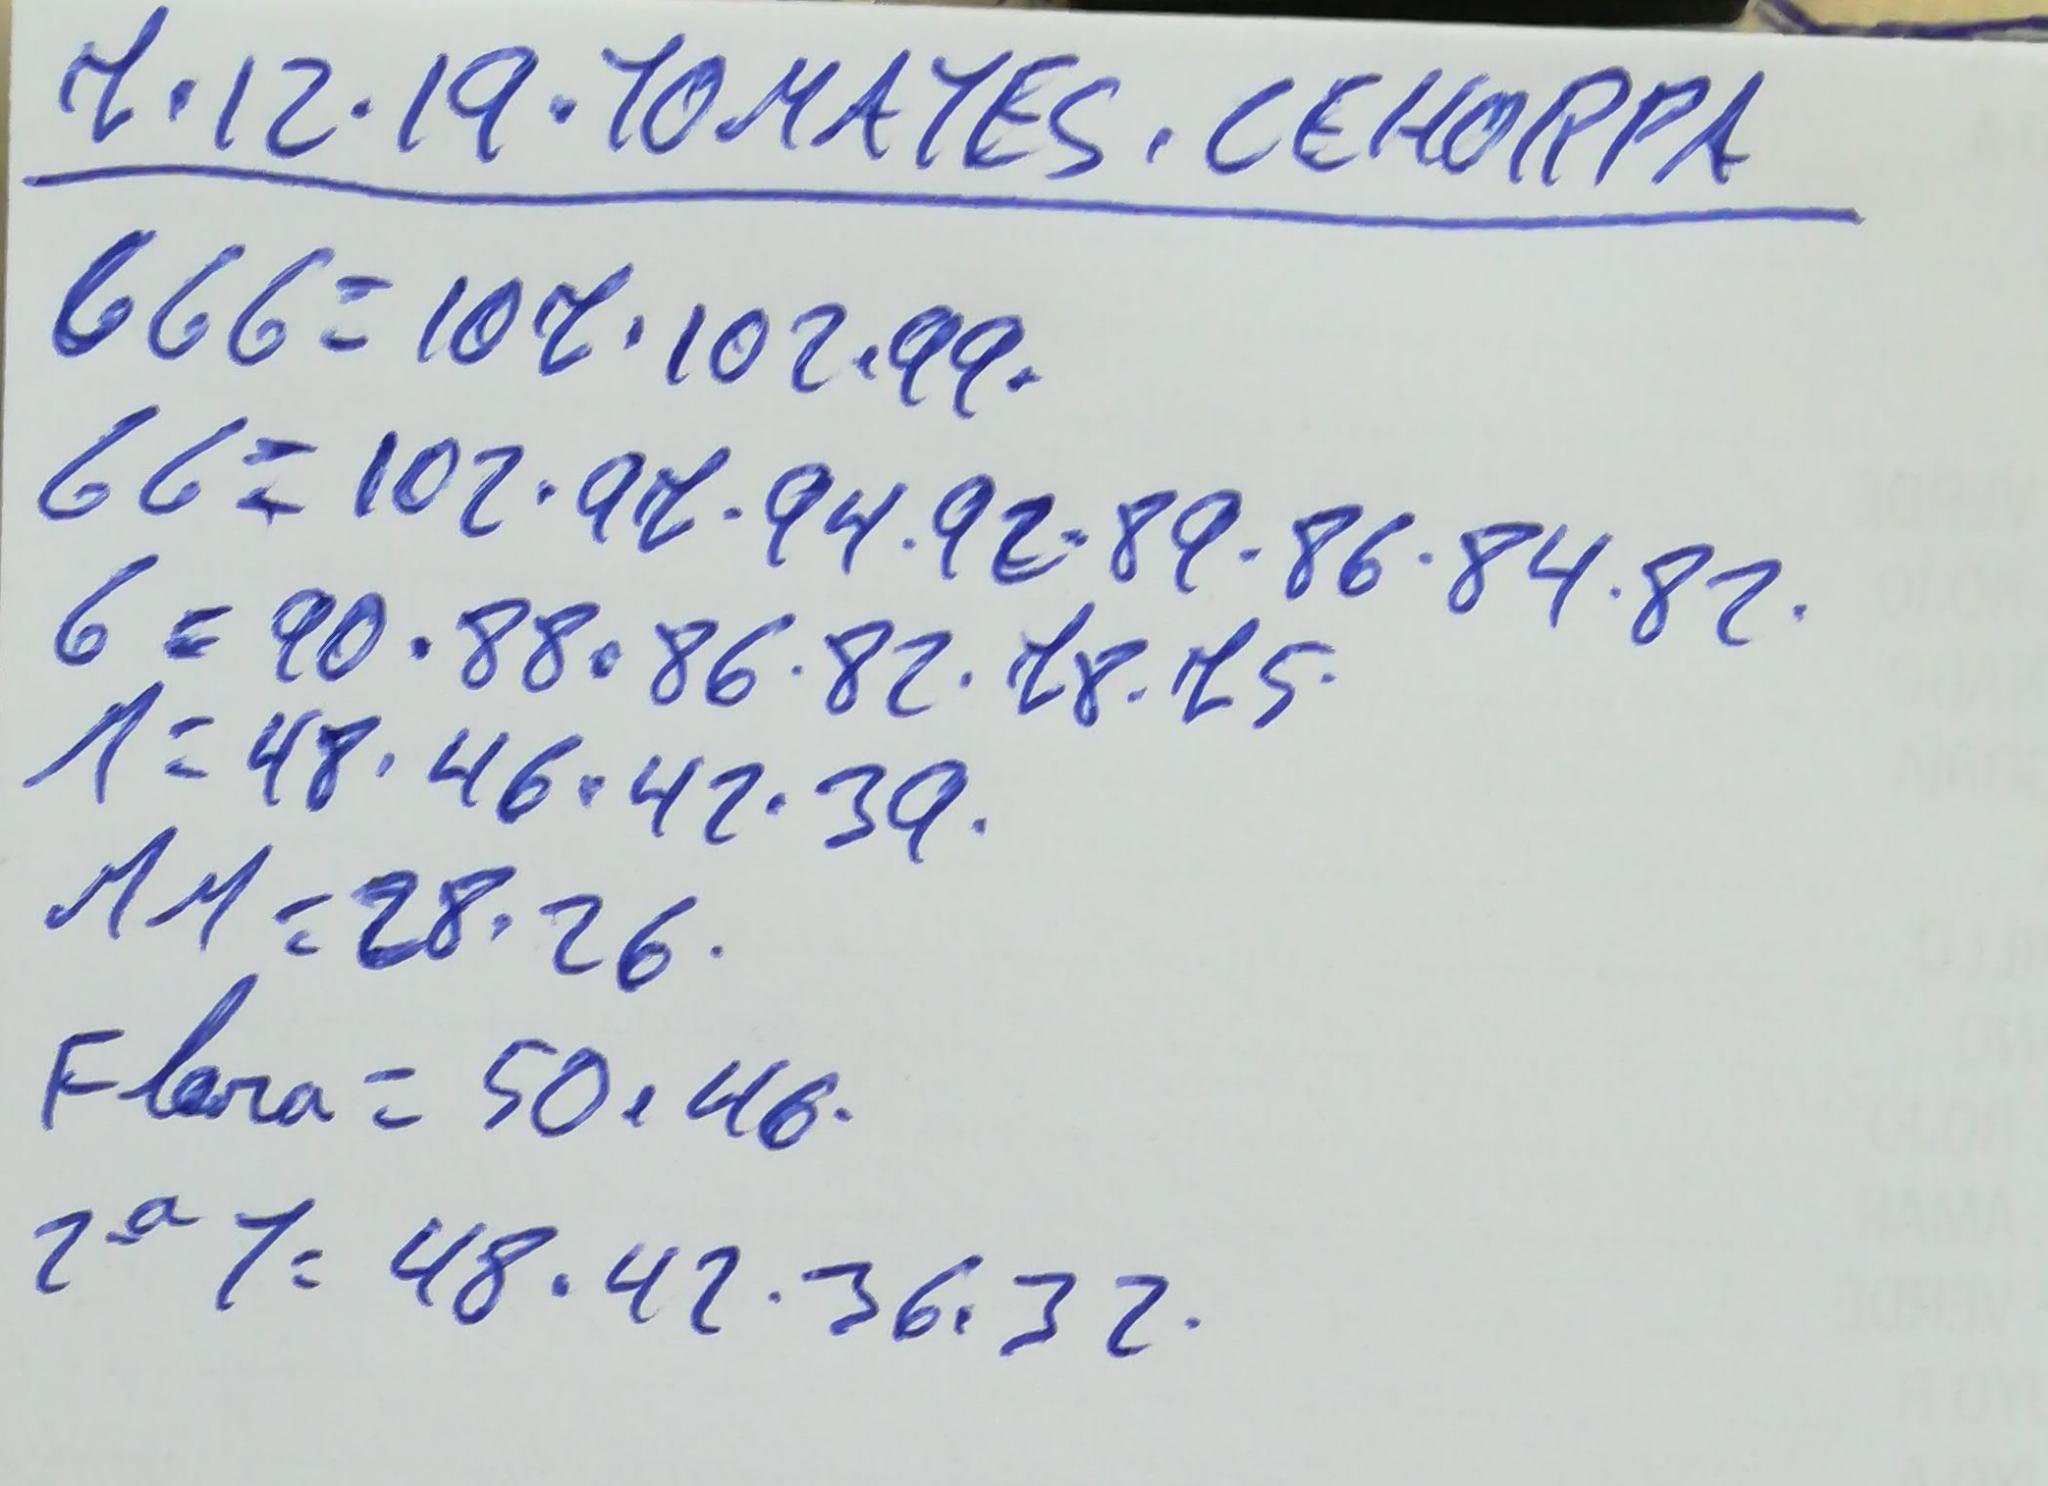 7.12.19.TOMATES.CEHORPA
GGG=107.102.99.
GG=102.97.94.92.89.86.84.82.
G=90.88.86.82.78.75.
M=48.46.42.39.
MM=28.26.
Flora=50.46.
2ª T=48.42.36.32.